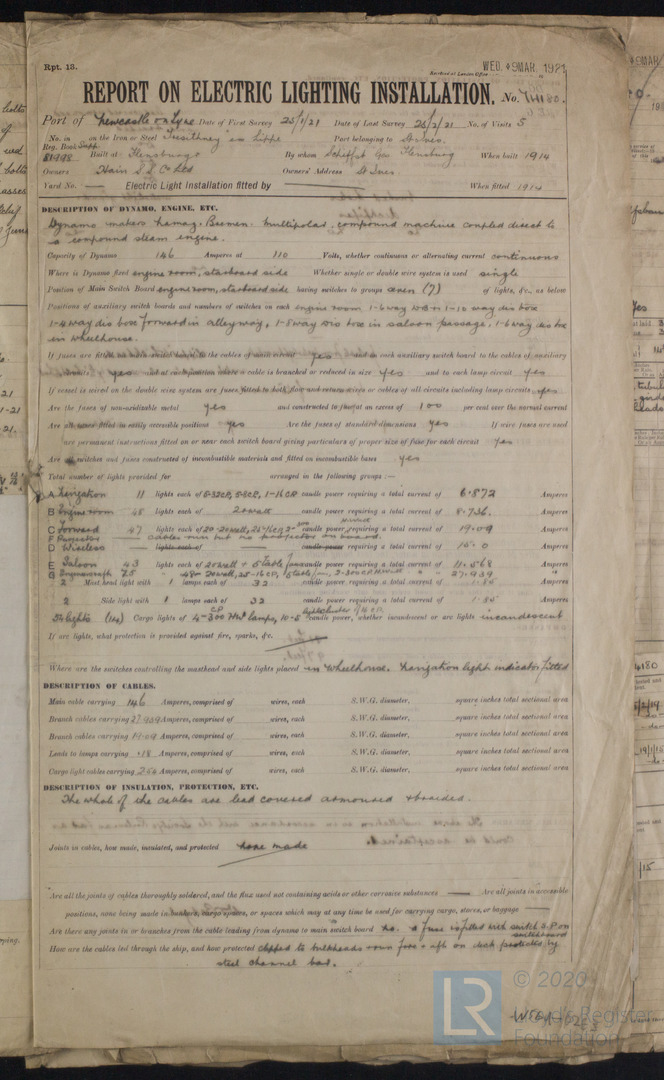 Rpt. 13.
WED. 9 MAR. 1921
Received at London Office
REPORT ON ELECTRIC LIGHTING INSTALLATION. No. 74180.
Port of Newcastle on Tyne Date of First Survey 25/1/21 Date of Last Survey 25/2/21 No. of Visits 5
No. in on the Iron or Steel Port belonging to St Ives.
Reg. Book Supp
81998 Built at Flensburg By whom Flensburg When built 1914
Owners Hain S.S. Co Ltd Owners' Address St Ives
Yard No. — Electric Light Installation fitted by When fitted 1914
DESCRIPTION OF DYNAMO, ENGINE, ETC.
Dynamo makers Hemag, Bremen. Multipolar, compound machine coupled direct to
a compound steam engine.
Capacity of Dynamo 146 Amperes at 110 Volts, whether continuous or alternating current continuous
Where is Dynamo fixed engine room, starboard side Whether single or double wire system is used single
Position of Main Switch Board engine room, starboard side having switches to groups seven (7) of lights, &c., as below
Positions of auxiliary switch boards and numbers of switches on each engine room 1-6 way 1-10 way dis box
1-4 way dis box forward in alleyway, 1-8 way dis box in saloon passage, 1-6 way dis box
in wheelhouse.
If fuses are fitted on main switch board to the cables of main circuit yes and on each auxiliary switch board to the cables of auxiliary
circuits yes and at each position where a cable is branched or reduced in size yes and to each lamp circuit yes
If vessel is wired on the double wire system are fuses fitted to both flow and return wires or cables of all circuits including lamp circuits yes
Are the fuses of non-oxidizable metal yes and constructed to fuse at an excess of 100 per cent over the normal current
Are all fuses fitted in easily accessible positions yes Are the fuses of standard dimensions yes If wire fuses are used
are permanent instructions fitted on or near each switch board giving particulars of proper size of fuse for each circuit yes
Are all switches and fuses constructed of incombustible materials and fitted on incombustible bases yes
Total number of lights provided for arranged in the following groups :—
A Navigation 11 lights each of candle power requiring a total current of 6.872 Amperes
B Engine room 48 lights each of 20 watt candle power requiring a total current of 8.736 Amperes
C Forward 47 lights each of candle power requiring a total current of 19.09 Amperes
F Projector cables run but no projector on board.
D Wireless — lights each of — candle power requiring a total current of 15.0 Amperes
E Saloon 43 lights each of candle power requiring a total current of 11.568 Amperes
2 Mast head light with 1 lamps each of 32 candle power requiring a total current of Amperes
2 Side light with 1 lamps each of 32 candle power requiring a total current of Amperes
Cargo lights of candle power, whether incandescent or arc lights incandescent
If arc lights, what protection is provided against fire, sparks, &c.
Where are the switches controlling the masthead and side lights placed in wheelhouse. Navigation light indicator fitted
DESCRIPTION OF CABLES.
Main cable carrying 146 Amperes, comprised of wires, each S.W.G. diameter, square inches total sectional area
Branch cables carrying 27.939 Amperes, comprised of wires, each S.W.G. diameter, square inches total sectional area
Branch cables carrying 19.09 Amperes, comprised of wires, each S.W.G. diameter, square inches total sectional area
Leads to lamps carrying .18 Amperes, comprised of wires, each S.W.G. diameter, square inches total sectional area
Cargo light cables carrying Amperes, comprised of wires, each S.W.G. diameter, square inches total sectional area
DESCRIPTION OF INSULATION, PROTECTION, ETC.
The whole of the cables are lead covered armoured & braided.
Joints in cables, how made, insulated, and protected none made
Are all the joints of cables thoroughly soldered, and the flux used not containing acids or other corrosive substances — Are all joints in accessible
positions, none being made in bunkers, cargo spaces, or spaces which may at any time be used for carrying cargo, stores, or baggage —
Are there any joints in or branches from the cable leading from dynamo to main switch board no. a fuse is fitted with switch D.P. on
switchboard
How are the cables led through the ship, and how protected clipped to bulkheads run fore & aft on deck protected by
steel channel bar.
LR
© 2020
Lloyd's Register
Foundation